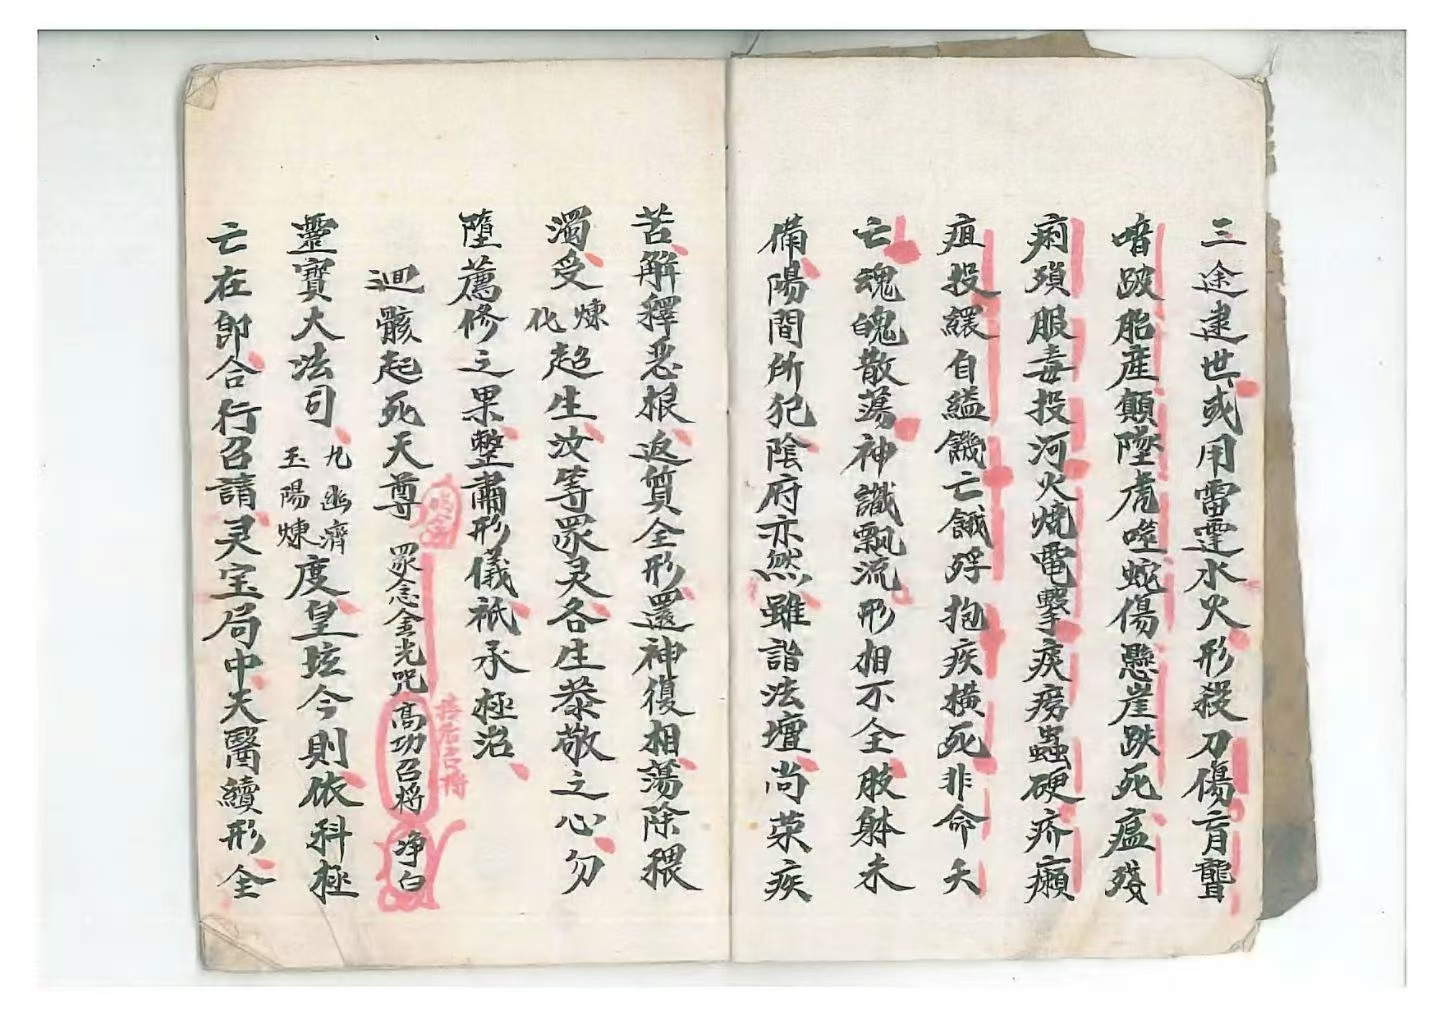 三途逮世或用雷霆水火形殺刀傷盲聾
喑跛胎産顛墜虎噬蛇傷懸崖跌死瘟殘
痢殞服毒投河火燒電擊痰癆蟲硬疥癩
疽投繯自縊饑亡餓殍抱疾横死非命夭
亡魂魄散蕩神識飄流形相不全肢躰未
備陽間所犯陰府亦然雖詣法壇尚荣疾
苦解釋惡根返質全形還神復相蕩除猥
濁受煉化超生汝等眾灵各生恭敬之心勿
墮薦修之果整肅形儀祇承極治
迴骸起死天尊 眾念金光咒 高功召将 净白
靈寶大法司 九幽濟玉陽煉 度皇坛今則依科極
亡在即合行召請灵宝局中天醫續形全